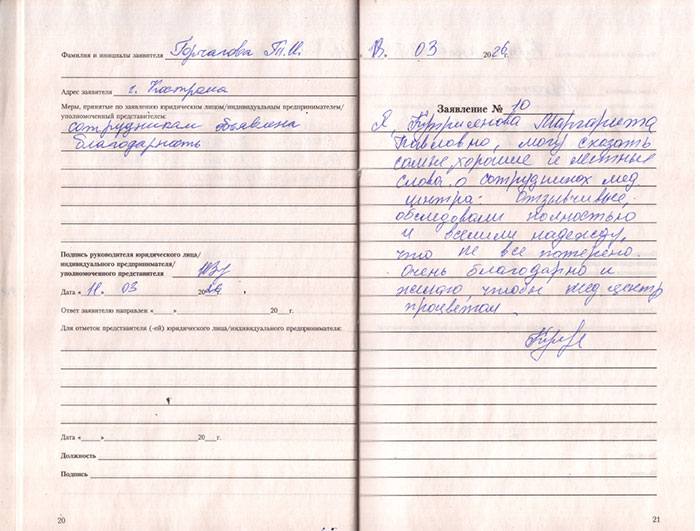 Фамилия и инициалы заявителя Горчагова Т.И.
Адрес заявителя г. Кострома
Меры, принятые по заявлению юридическим лицом/индивидуальным предпринимателем/
уполномоченный представителем:
сотрудникам объявлена
благодарность
Подпись руководителя юридического лица/
индивидуального предпринимателя/
уполномоченного представителя
Дата « 11 » 03 20
Ответ заявителю направлен «____»____________20___г.
Для отметок представителя (-ей) юридического лица/индивидуального предпринимателя:
Дата «____»____________20___г.
Должность
Подпись
20
03 20
Заявление № 10
Я Маргарита
Павловно, могу сказать
самые хорошие и лестные
слова о сотрудниках мед
центра. Отзывчивые,
обследовали полностью
и вселили надежду,
что не все потеряно.
Очень благодарно и
желаю чтобы мед центр
процветал
21